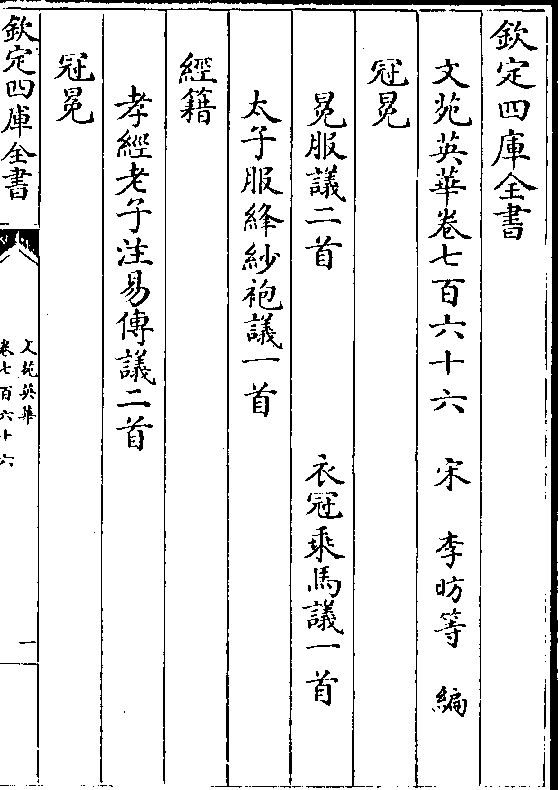 欽定四庫全書
文苑英華卷七百六十六　宋　李昉等　編
冠冕
冕服議二首　衣冠乘馬議一首
太子服絳紗袍議一首
經籍
孝經老子注易傳議二首
冠冕
欽定四庫全書
文苑英華
卷七百六十六
一